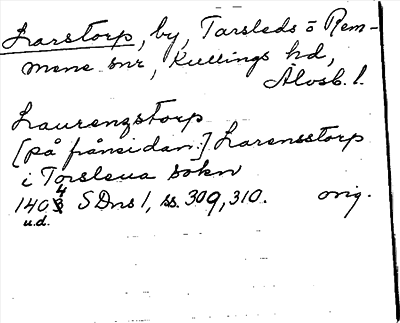 Larstorp, by, Tarsleds o Rem-
mene snr, Kullings hd,
Älvsb. l.
Laurenzstorp
[på frånsidan:] Larensstorp
i Torsleua sokn
1404 SDns 1, ss. 309, 310. orig.
u.d.